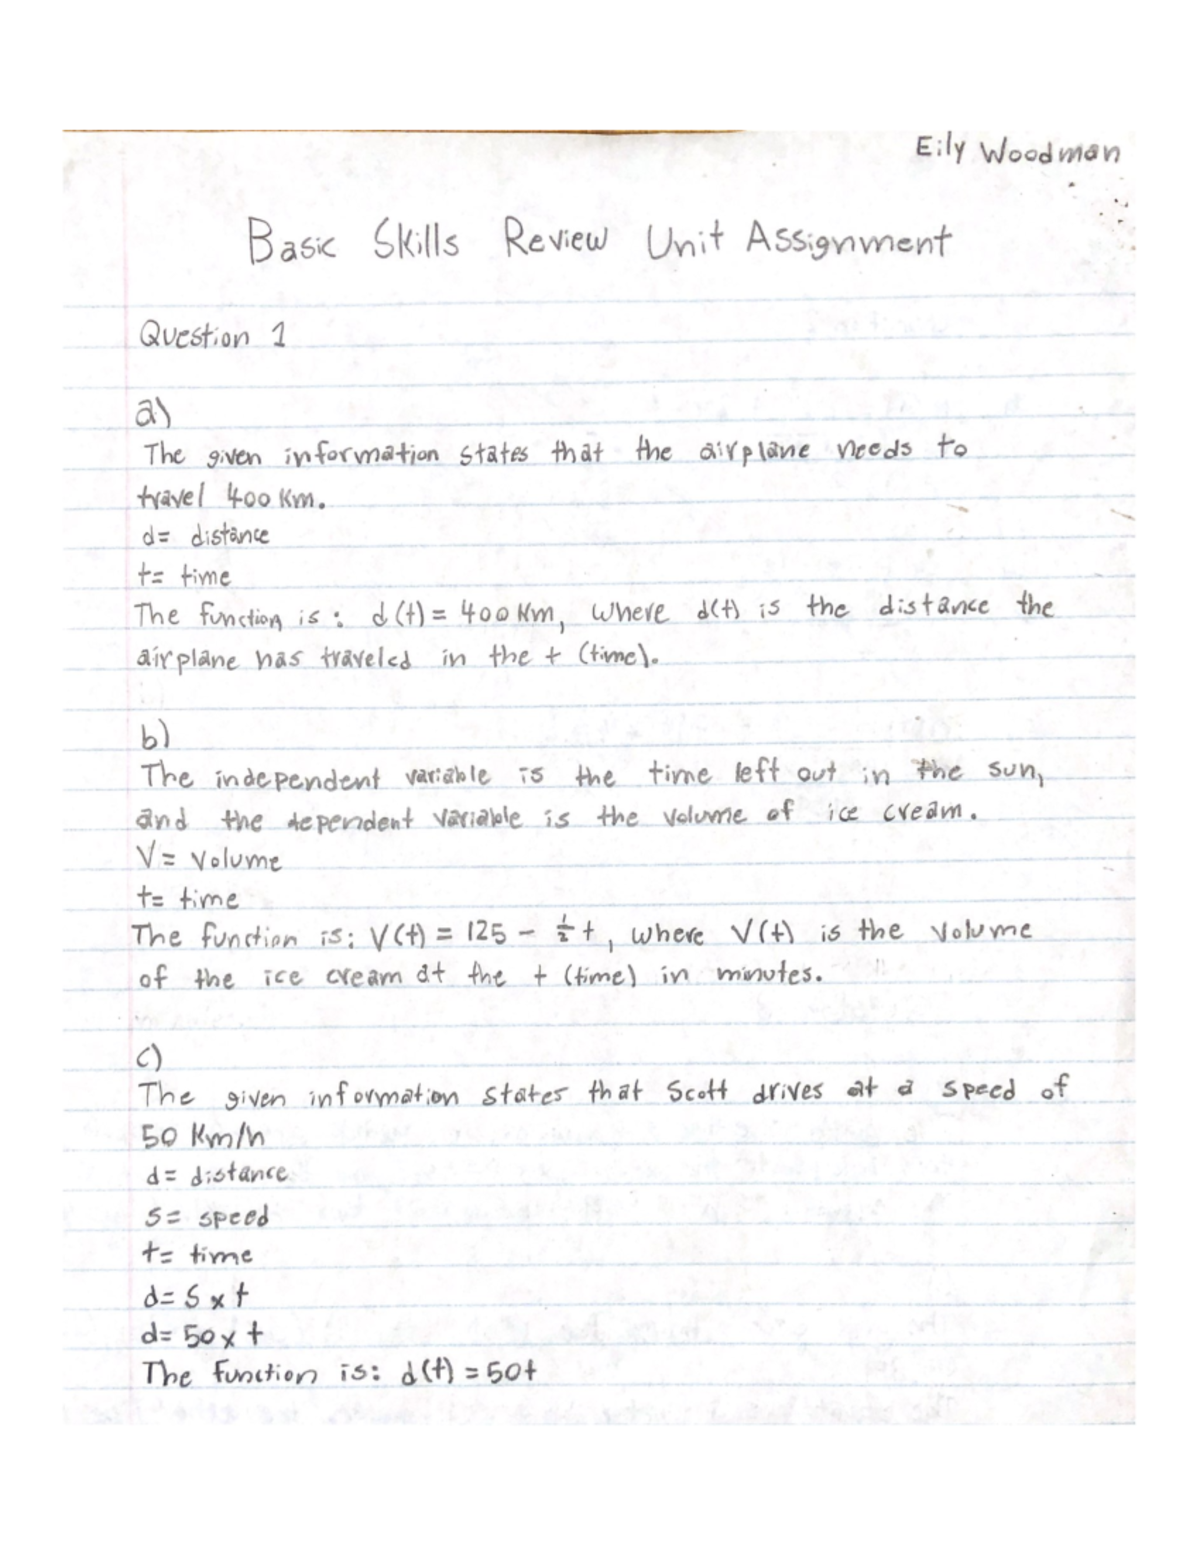 Eily Woodman
Basic Skills Review Unit Assignment
Question 1
a)
The given information states that the airplane needs to
travel 400 Km.
d= distance
t= time
The function is: d(t) = 400 Km, where d(t) is the distance the
airplane has traveled in the t (time).
b)
The independent variable is the time left out in the sun,
and the dependent variable is the volume of ice cream.
V= Volume
t= time
The function is: V(t) = 125 - 1/2 t, where V(t) is the volume
of the ice cream at the t (time) in minutes.
c)
The given information states that Scott drives at a speed of
50 Km/h
d= distance
S= speed
t= time
d= S x t
d= 50 x t
The function is: d(t) = 50t